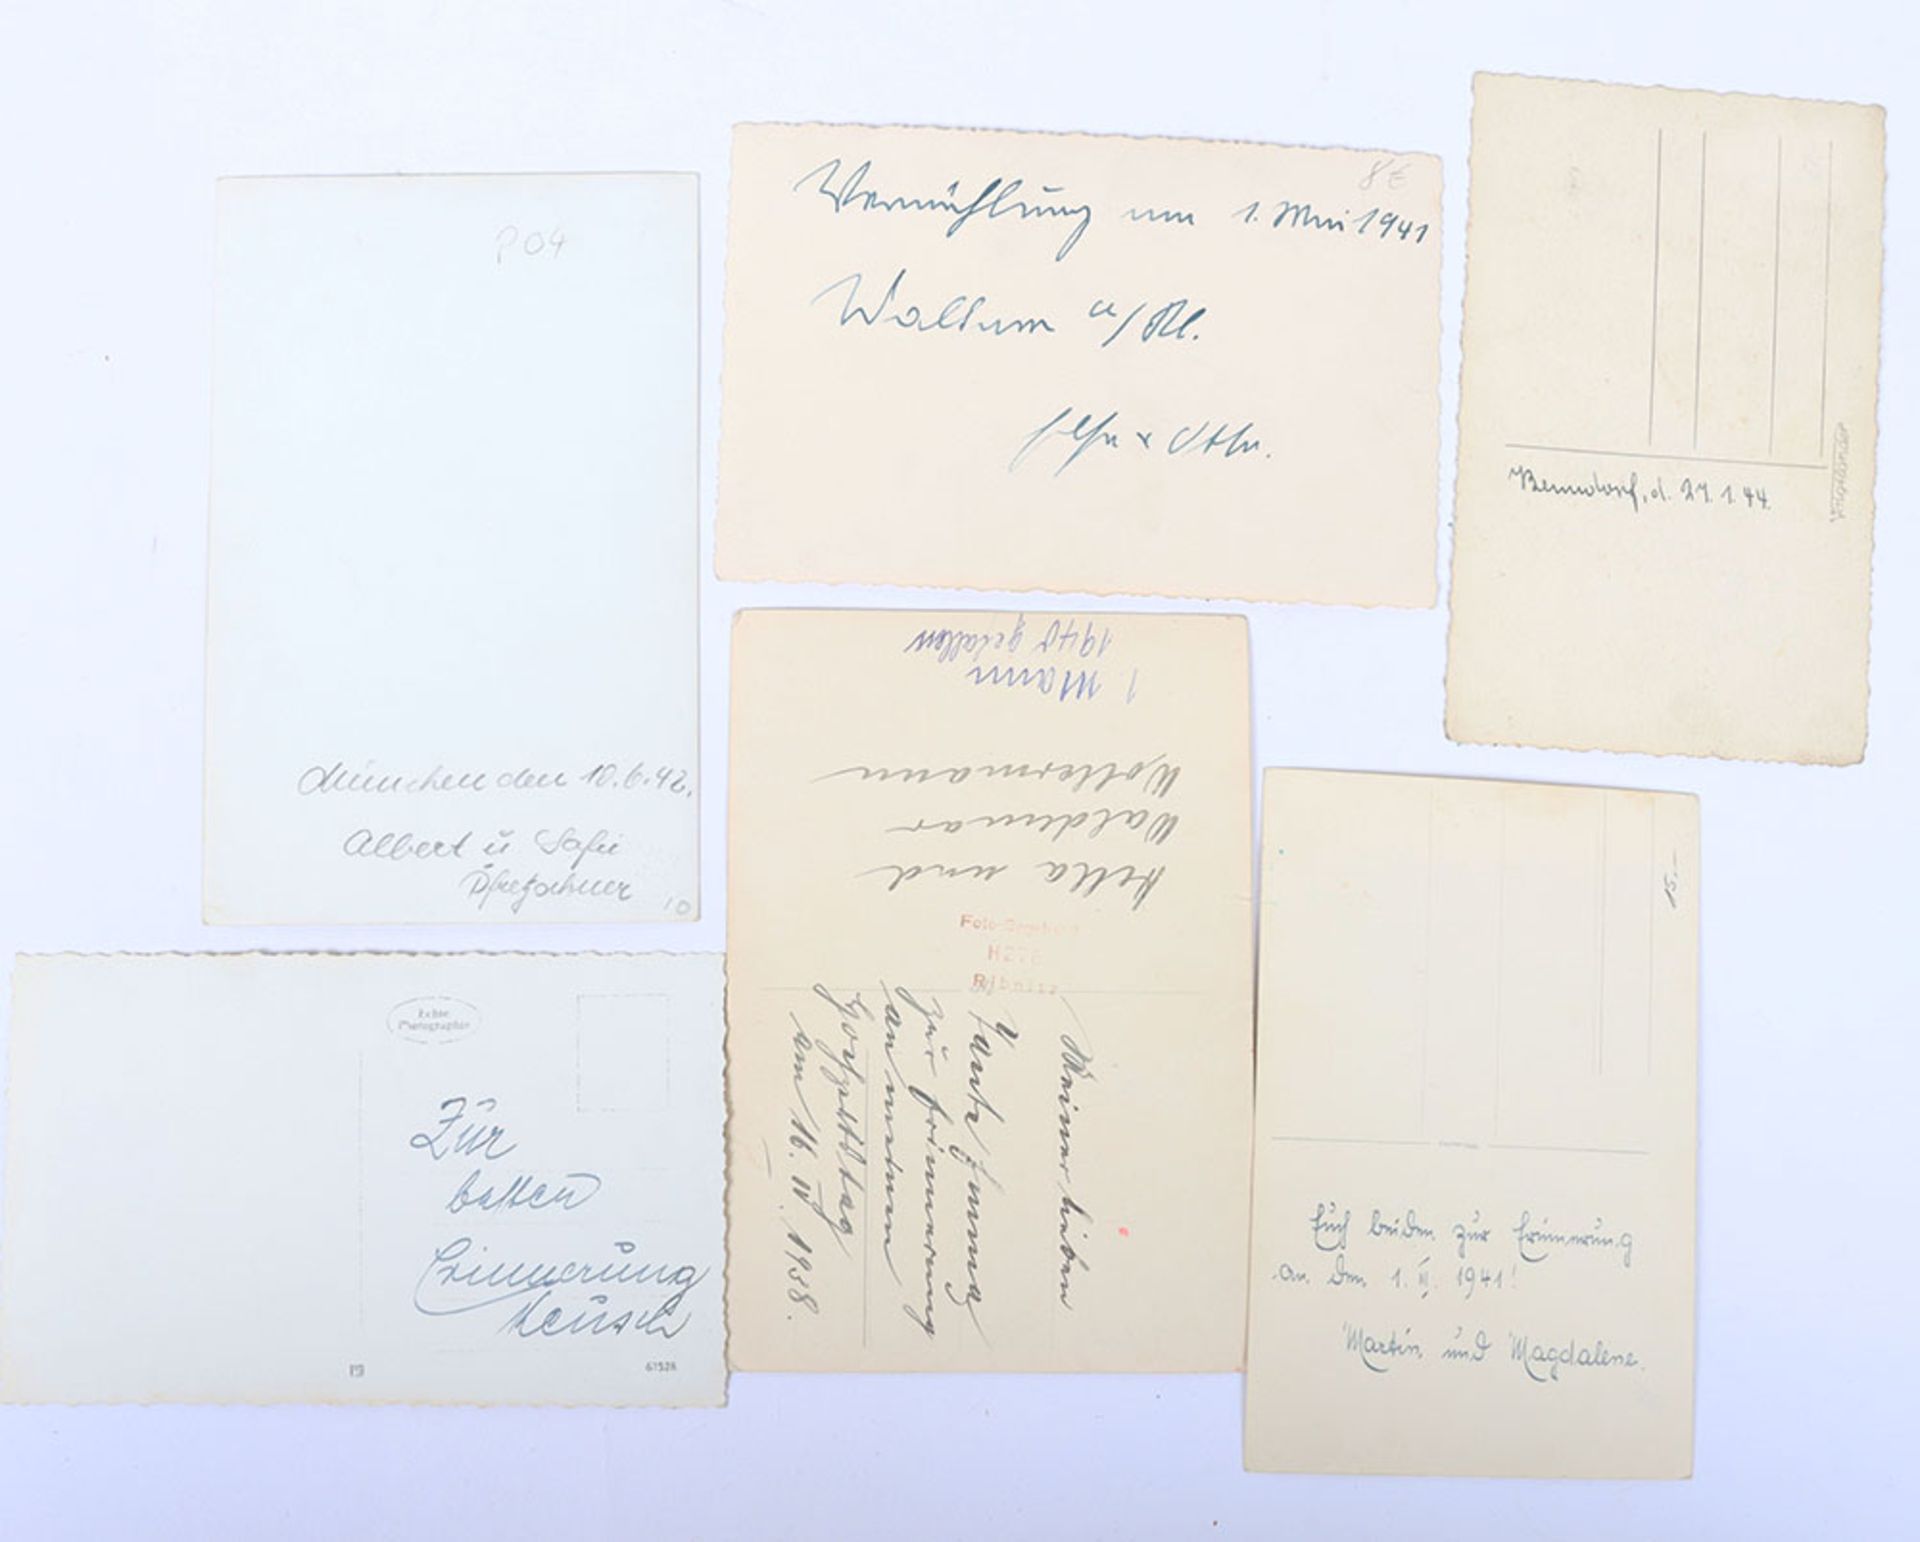 P 04
München den 10.6.42.
Albert u
10
Vermählung am 1. Mai 1941
8€
Walsum a/Rh.
Benndorf, d. 27.1.44.
Vogelsnder
1. Mann
1940 gefallen
Hella und
Waldemar
Woltermann
Foto
H278
Ribnitz
Meiner lieben
Tante
zur Erinnerung
an meinen
Hochzeitstag
am 16. IV. 1938.
Echte
Photographie
Zur
besten
Erinnerung
19
61528
15.-
Euch beiden zur Erinnerung
an den 1. 1941!
Martin und Magdalene.